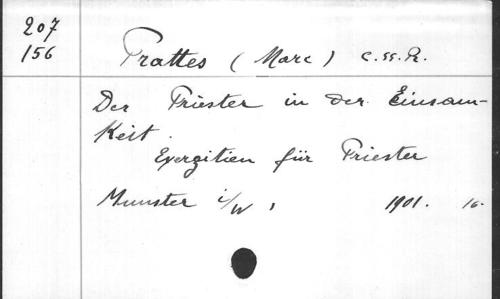 207
156
Prattes (Marc) C.SS.R.
Der Priester in der Einsam-
Keit.
Exergitien für Priester
Munster i/W, 1901. 16.